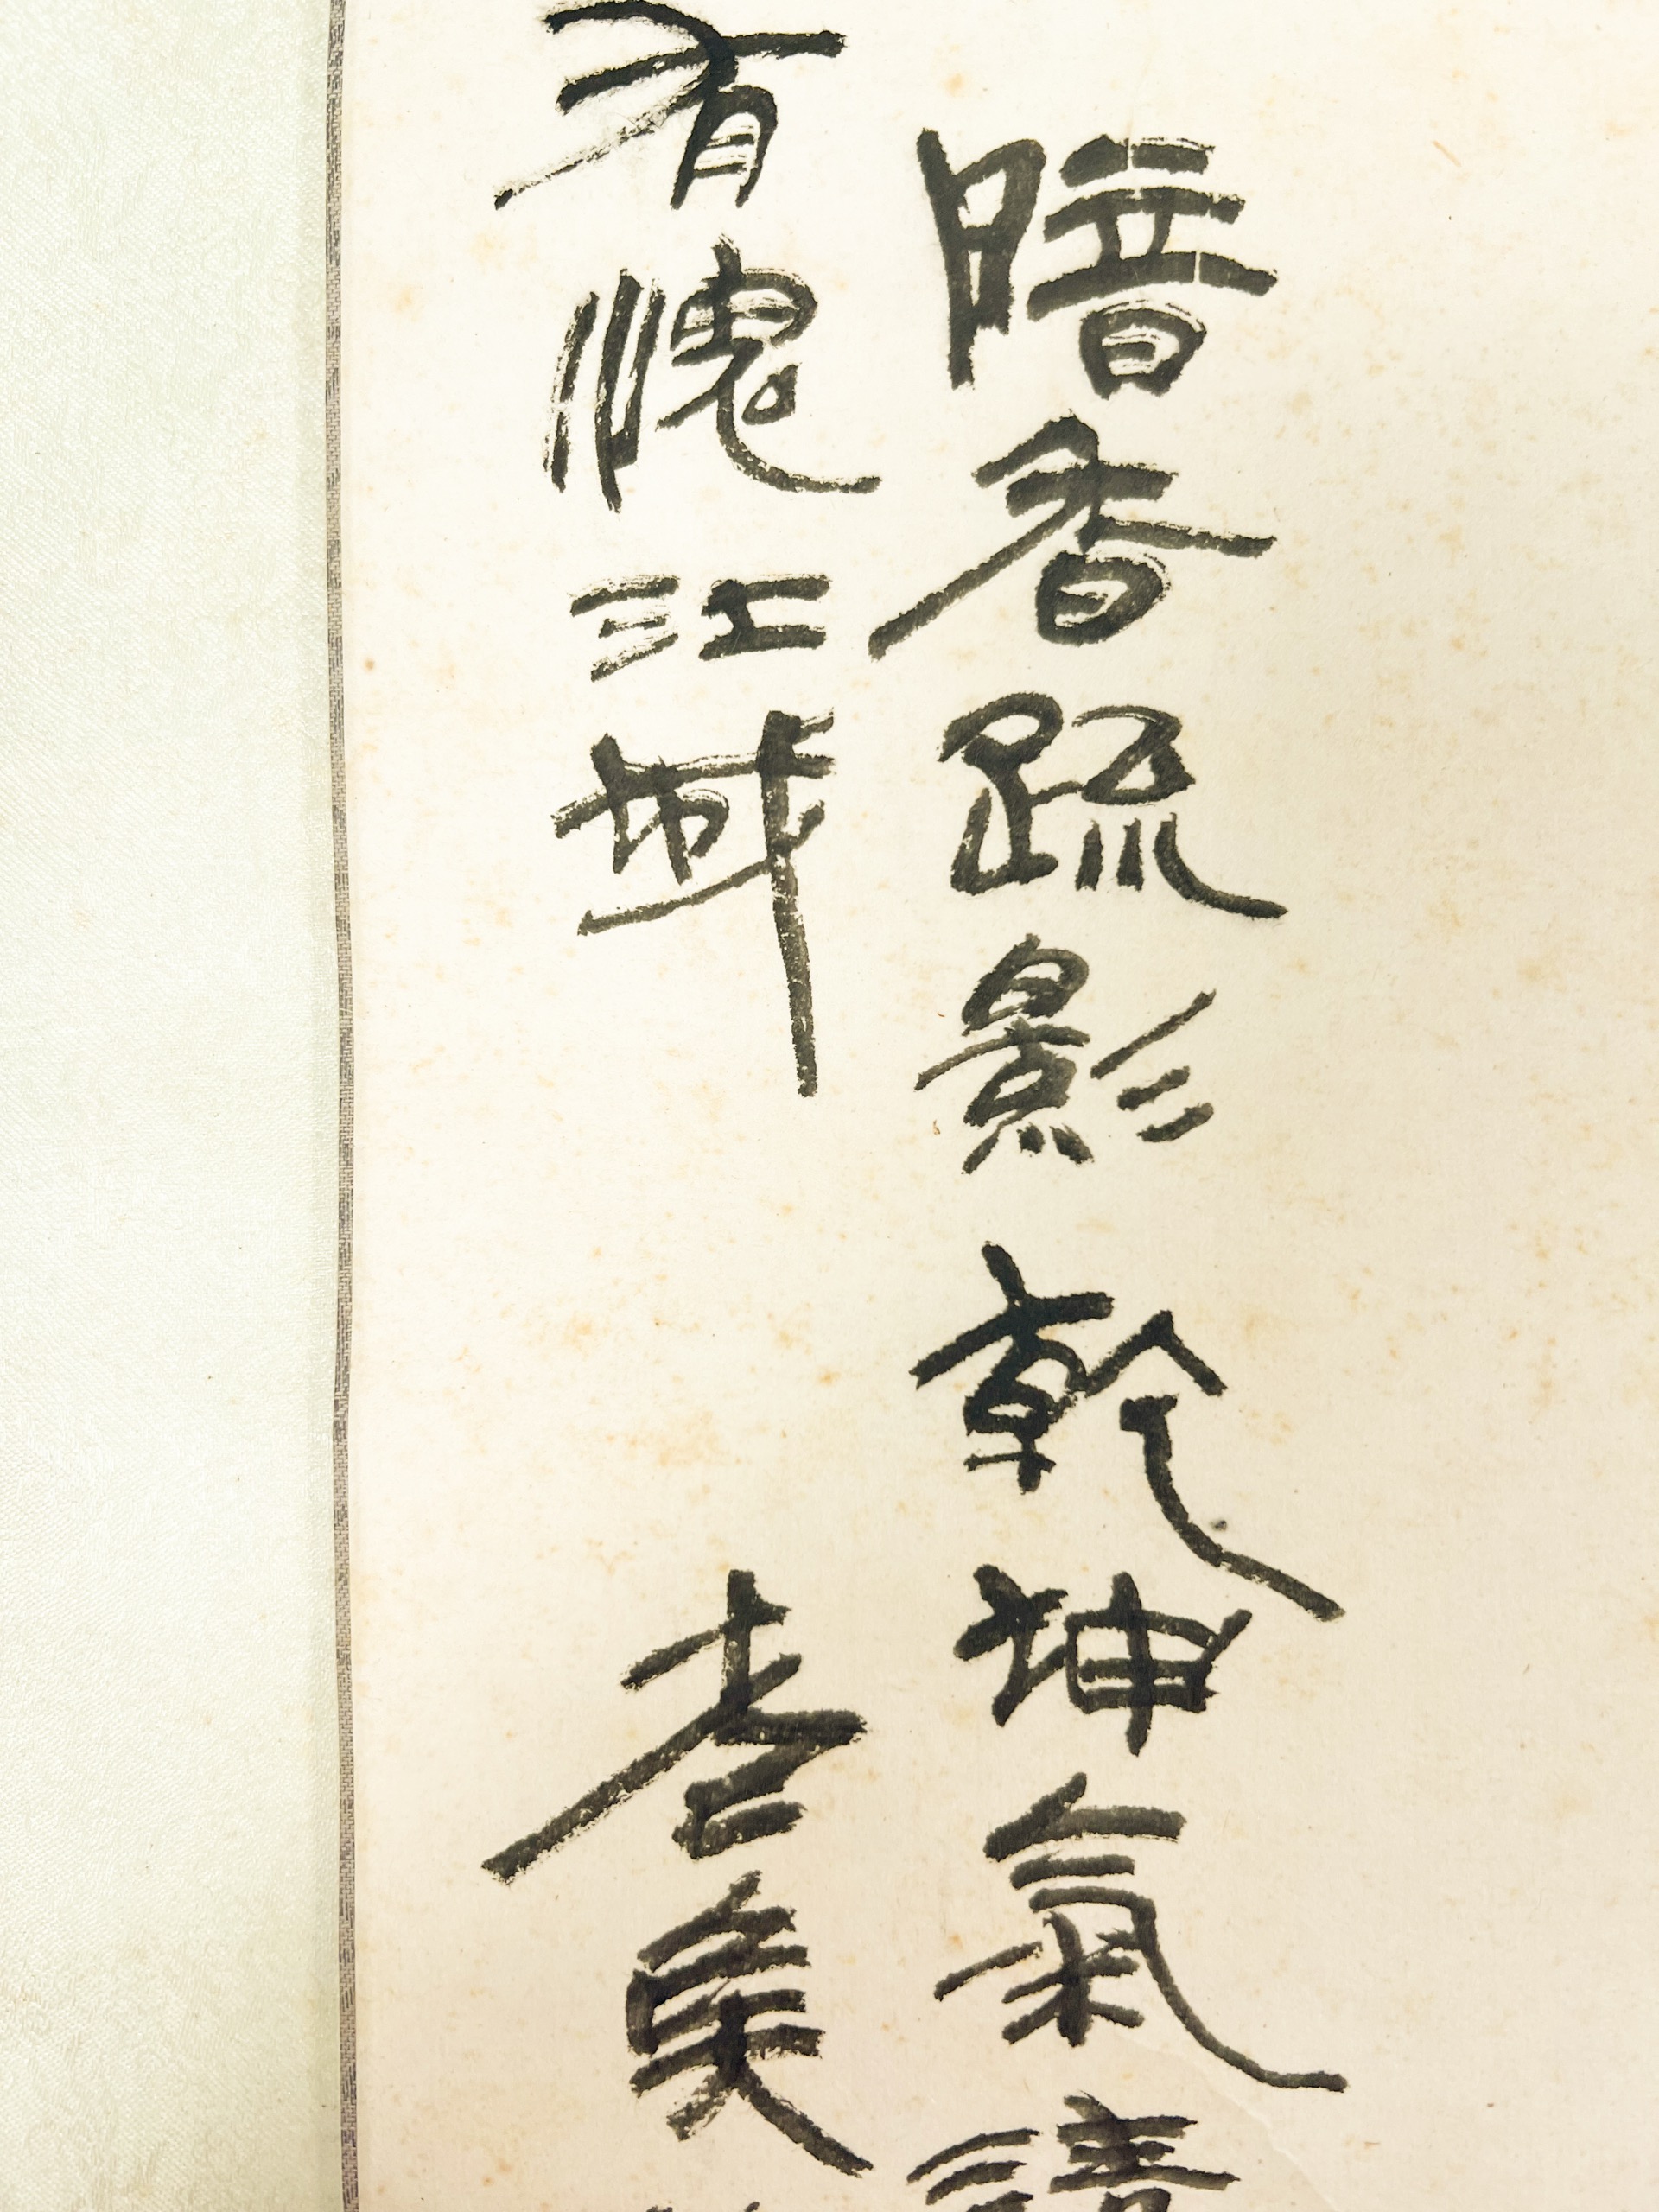 暗香疏影乾坤氣清
有愧江城 老矣